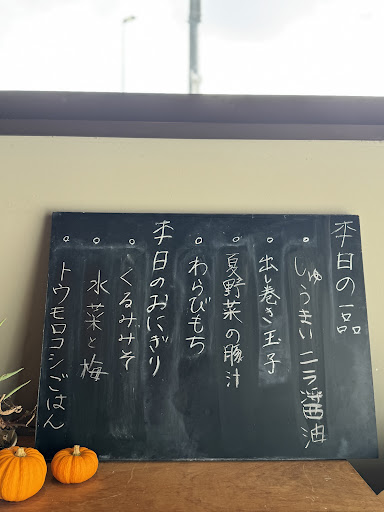 本日の一品
○しゅうまい ニラ醤油
○出し巻き玉子
○夏野菜の豚汁
○わらびもち
本日のおにぎり
○くるみみそ
○水菜と梅
○トウモロコシごはん